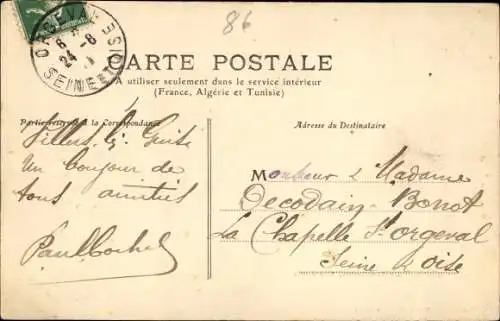 86
ORGEVAL
8
24 -8
SEINE ET OISE
CARTE POSTALE
A utiliser seulement dans le service intérieur
(France, Algérie et Tunisie)
Partie réservée à la Correspondance
Adresse du Destinataire
Un bonjour de
tous amitiés
Monsieur & Madame
Decodain-Bonot
La Chapelle St orgeval
Seine & oise